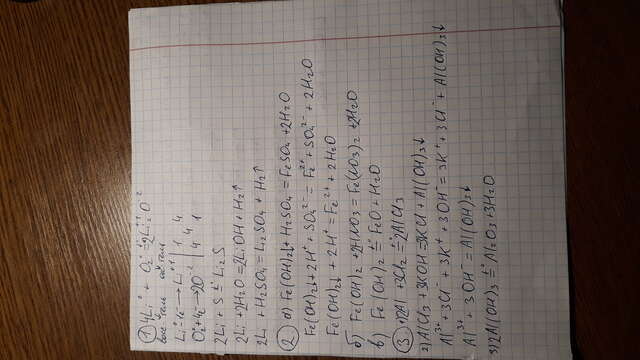 ① 4Li⁰ + O₂⁰ =t° 2Li₂⁺¹O⁻²
восс-тель ок-тель
Li⁰-1e⁻ → Li⁺¹ | 1 | 4
4
O₂⁰+4e⁻ → 2O⁻² | 4 | 1
2Li + S =t° Li₂S
2Li + 2H₂O = 2LiOH + H₂↑
2Li + H₂SO₄ = Li₂SO₄ + H₂↑
② а) Fe(OH)₂↓ + H₂SO₄ = FeSO₄ + 2H₂O
Fe(OH)₂↓ + 2H⁺ + SO₄²⁻ = Fe²⁺ + SO₄²⁻ + 2H₂O
Fe(OH)₂↓ + 2H⁺ = Fe²⁺ + 2H₂O
б) Fe(OH)₂ + 2HNO₃ = Fe(NO₃)₂ + 2H₂O
в) Fe(OH)₂ =t° FeO + H₂O
③ 1) 2Al + 3Cl₂ =t° 2AlCl₃
2) AlCl₃ + 3KOH = 3KCl + Al(OH)₃↓
Al³⁺ + 3Cl⁻ + 3K⁺ + 3OH⁻ = 3K⁺ + 3Cl⁻ + Al(OH)₃↓
Al³⁺ + 3OH⁻ = Al(OH)₃↓
3) 2Al(OH)₃ =t° Al₂O₃ + 3H₂O